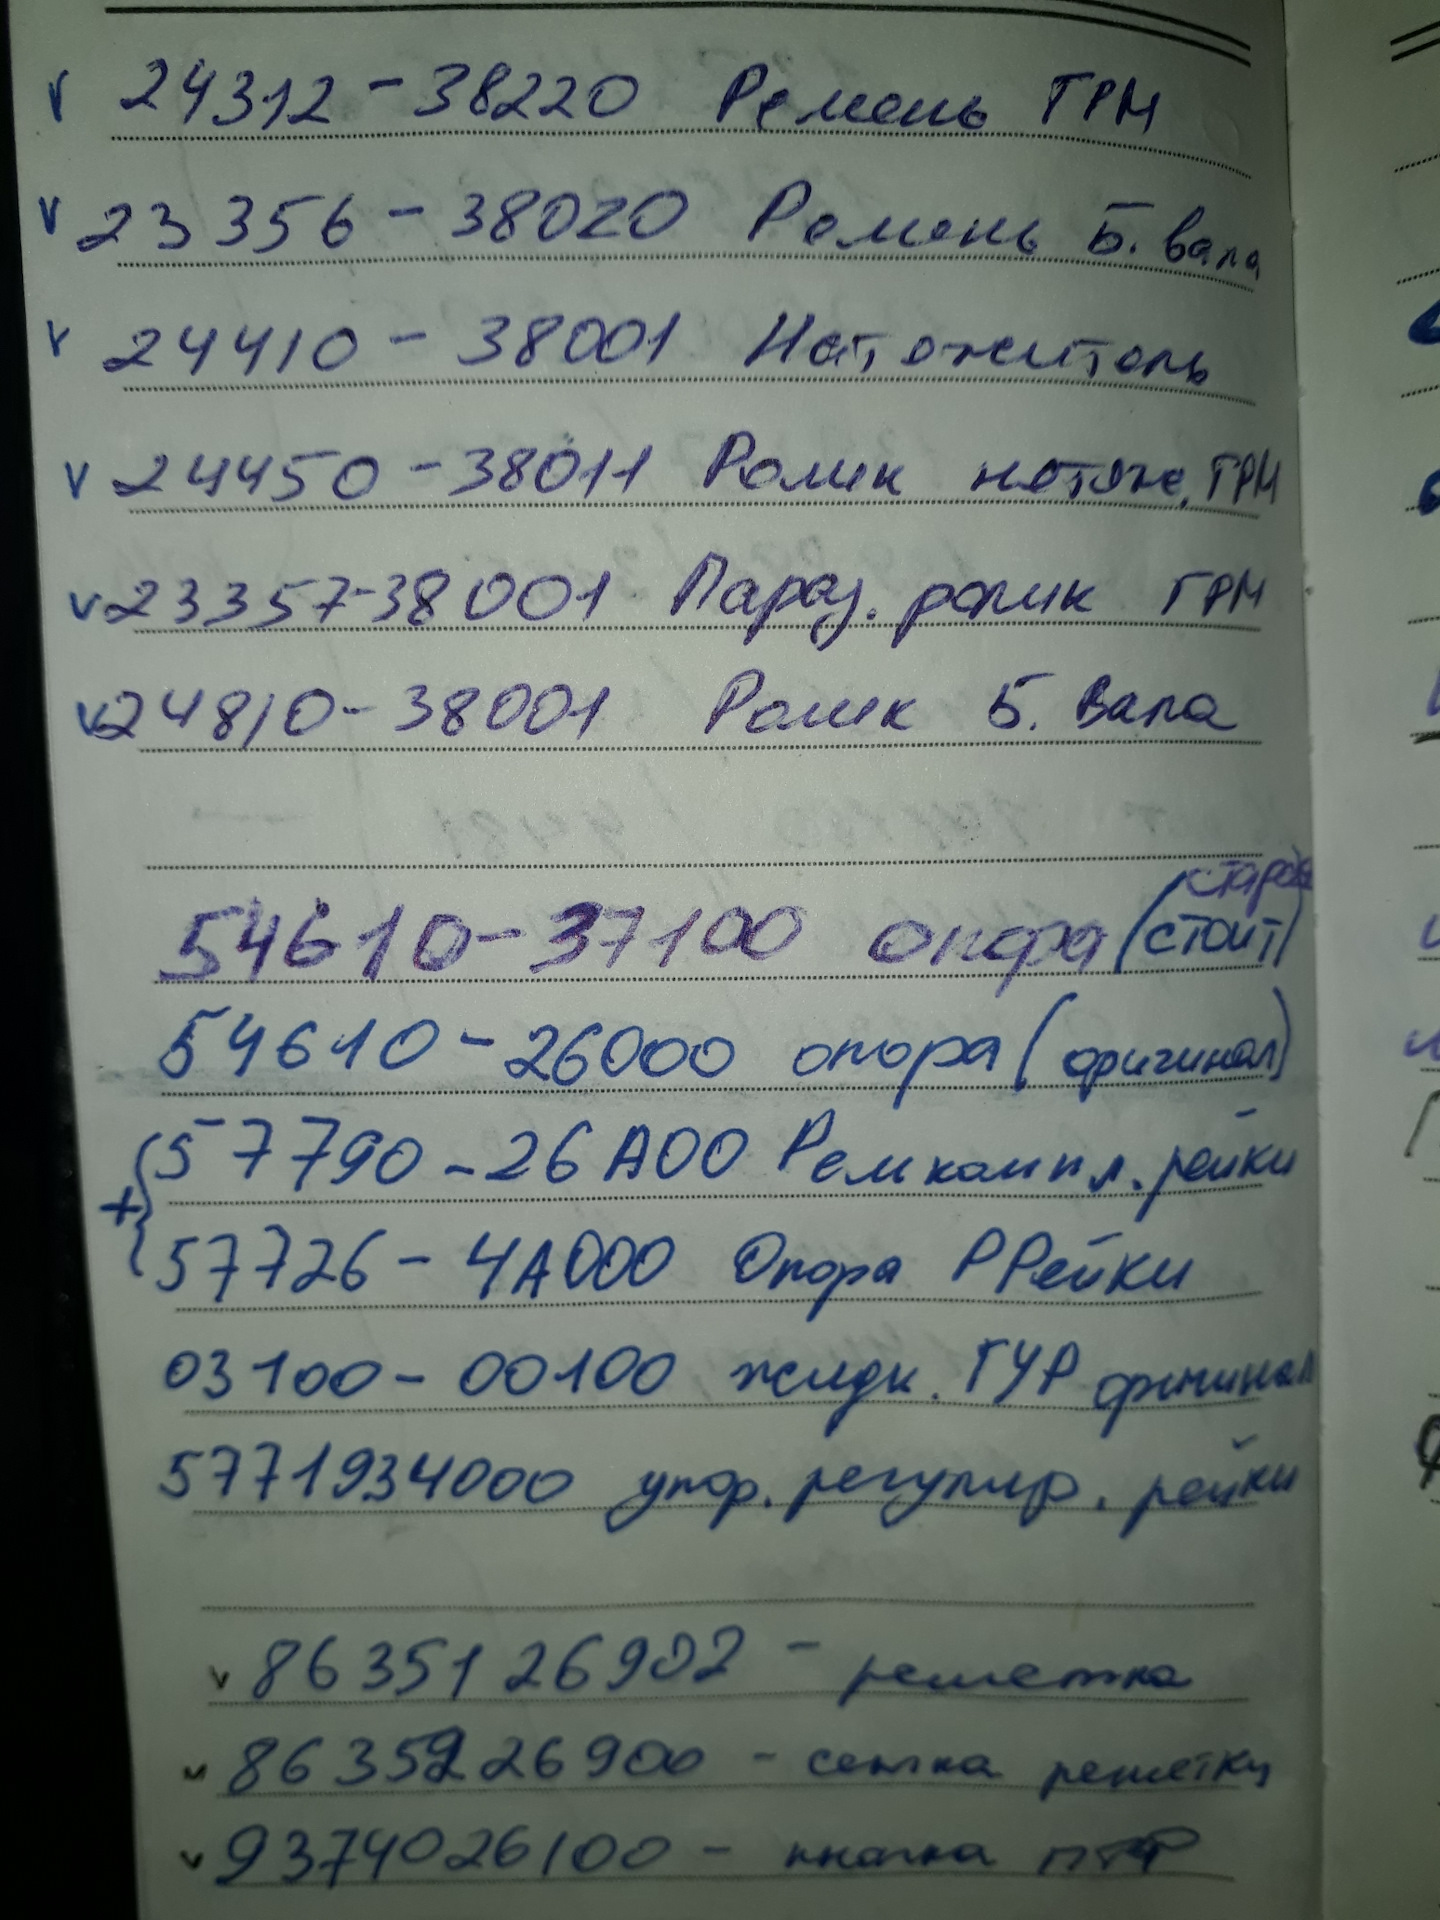 v 24312-38220 Ремень ГРМ
v 23356-38020 Ремень Б. вала
v 24410-38001 Натяжитель
v 24450-38011 Ролик натяж. ГРМ
v 23357-38001 Параз. ролик ГРМ
v 24810-38001 Ролик Б. Вала
старая
54610-37100 опора (стоит)
54610-26000 опора (оригинал)
57790-26A00 Ремкомпл. рейки
+
57726-4A000 Опора РРейки
03100-00100 жидк. ГУР оригинал
5771934000 упор. регулир. рейки
v 8635126902 - решетка
v 8635226900 - сетка решетки
v 9374026100 - кнопка ПТФ